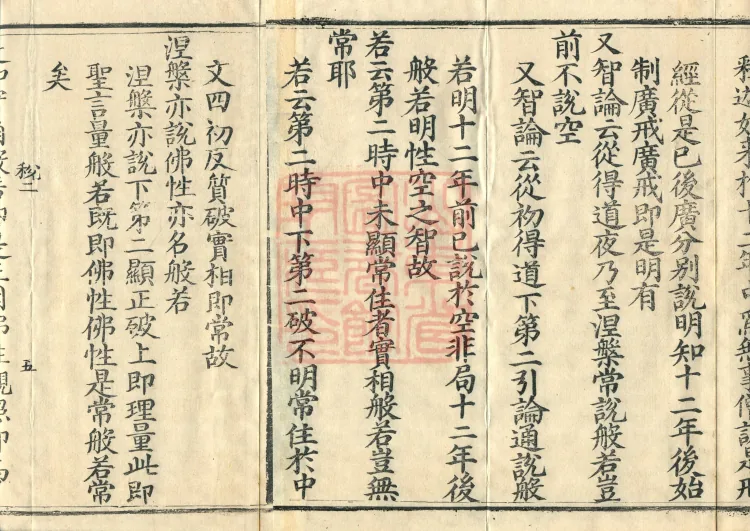 經從是已後廣分別說明知十二年後始
制廣戒廣戒即是明有
又智論云從得道夜乃至涅槃常說般若豈
前不說空
又智論云從初得道下第二引論通說般
若明十二年前已說於空非局十二年後
般若明性空之智故
若云第二時中未顯常住者實相般若豈無
常耶
若云第二時中下第二破不明常住於中
文四初反質破實相即常故
涅槃亦說佛性亦名般若
涅槃亦說下第二顯正破上即理量此即
聖言量般若既即佛性佛性是常般若常
矣
五